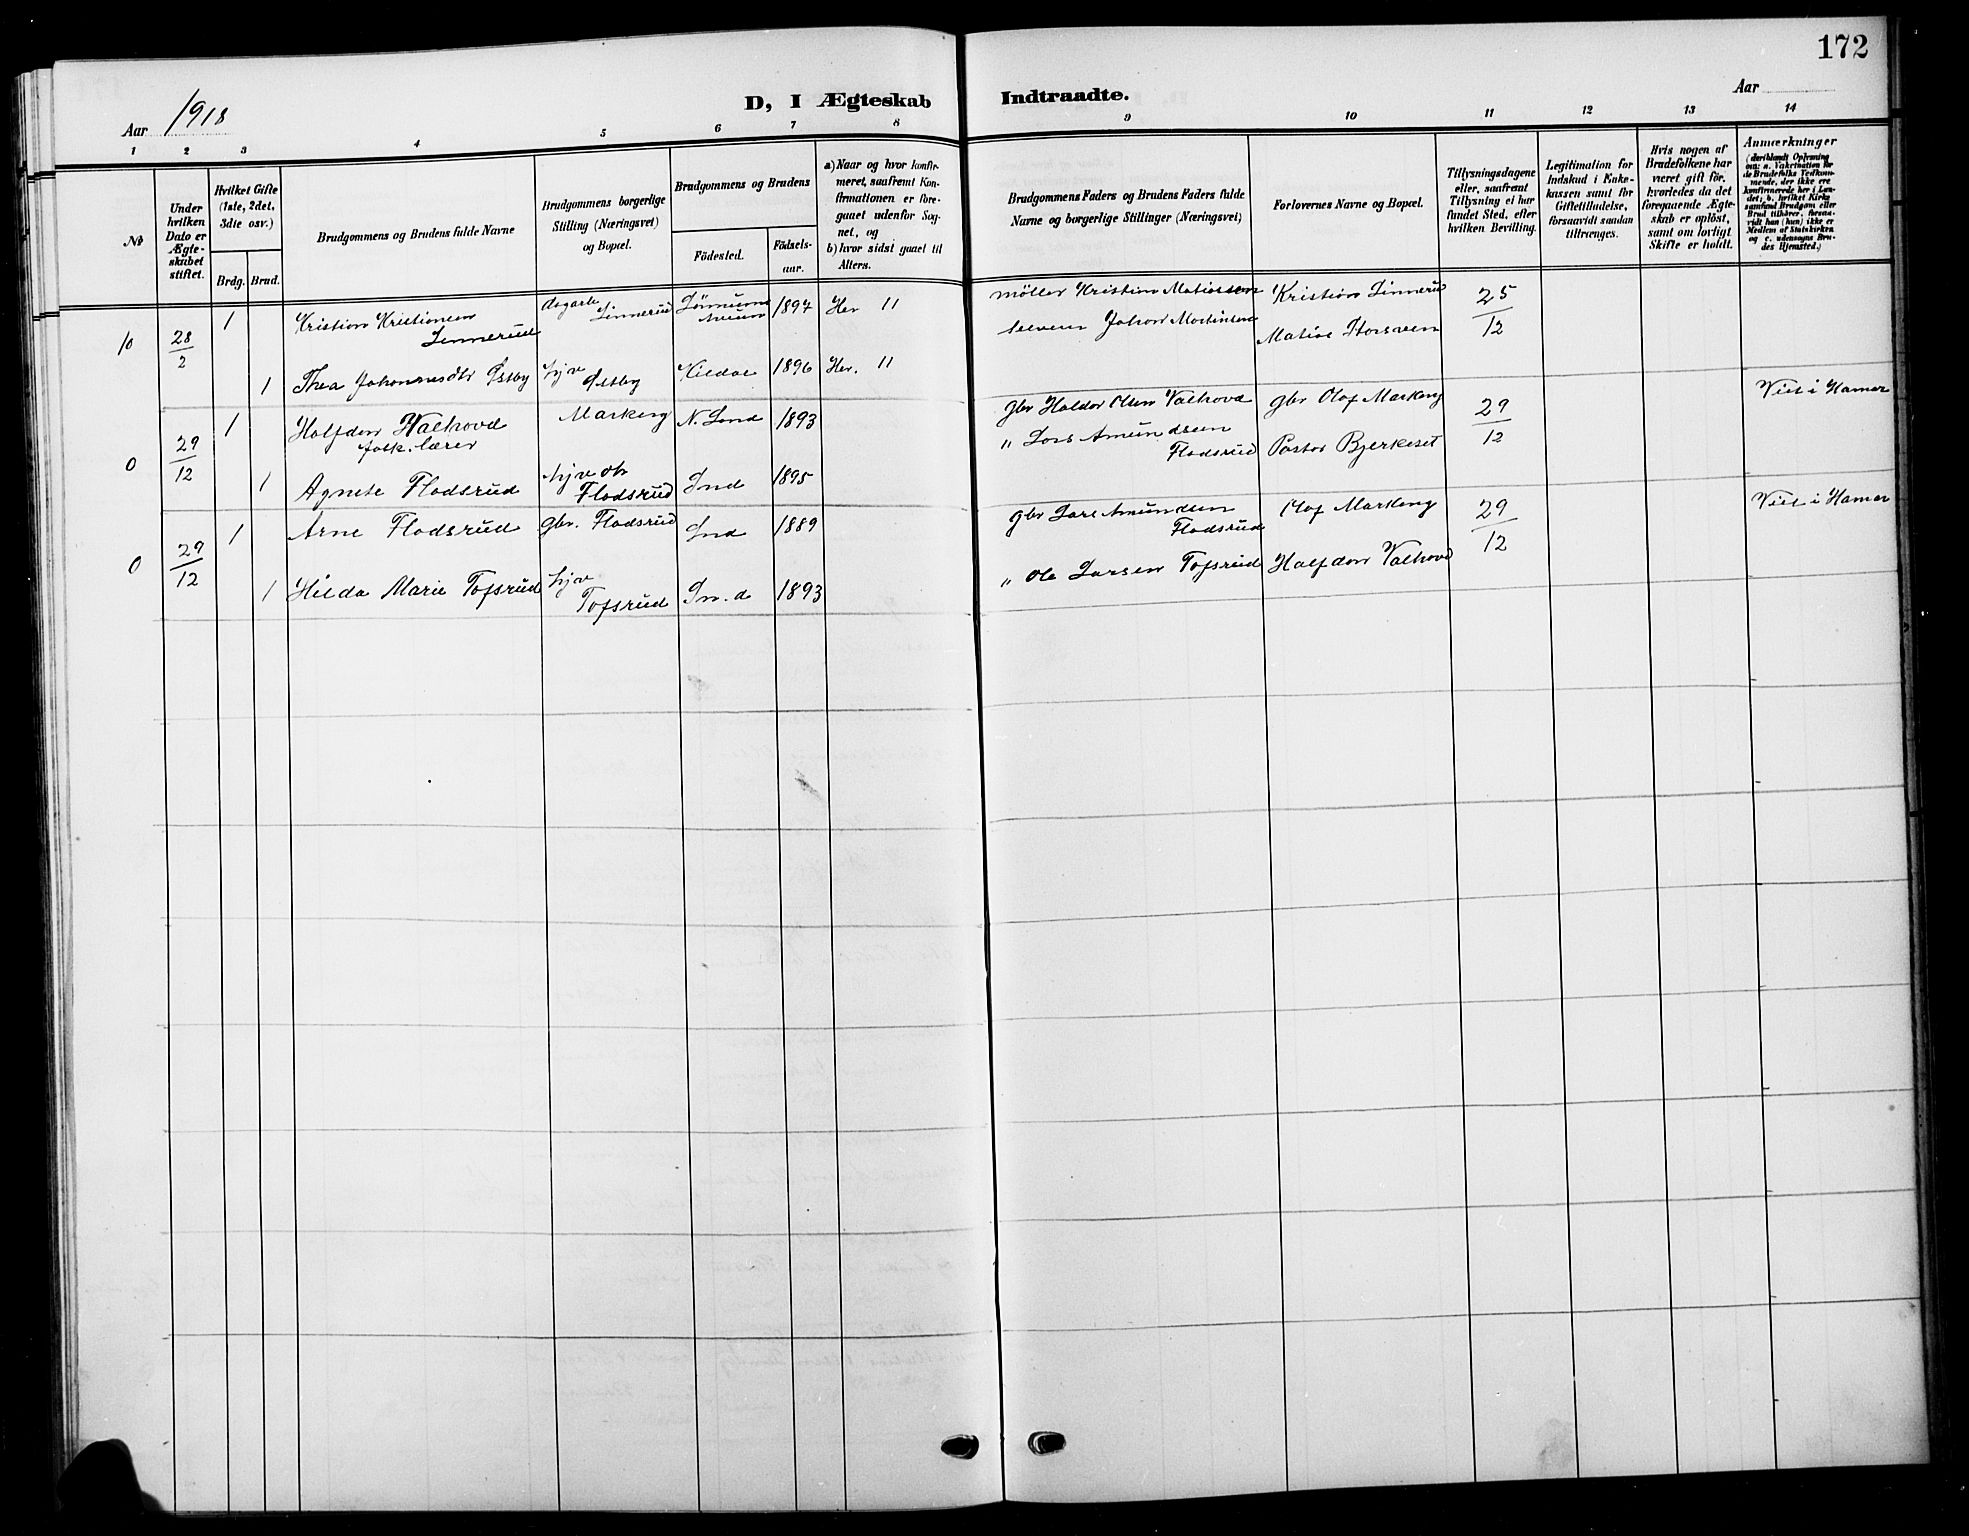 172
D, I Ægteskab Indtraadte.
Aar 1918
Aar
1 2 3 4 5 6 7 8 9 10 11 12 13 14
No
Under
hvilken
Dato er
Ægte-
skabet
stiftet.
Hvilket Gifte
(1ste, 2det,
3die osv.)
Brdg. Brud.
Brudgommens og Brudens fulde Navne
Brudgommens borgerlige
Stilling (Næringsvei)
og Bopæl.
Brudgommens og Brudens
Födested.
Födsels-
aar.
a) Naar og hvor konfir-
meret, saafremt Kon-
firmationen er fore-
gaaet udenfor Sog-
net, og
b) hvor sidst gaaet til
Alters.
Brudgommens Faders og Brudens Faders fulde
Navne og borgerlige Stillinger (Næringsvei)
Forlovernes Navne og Bopæl.
Tillysningsdagene
eller, saafremt
Tillysning ei har
fundet Sted, efter
hvilken Bevilling.
Legitimation for
Indskud i Enke-
kassen samt for
Giftetilladelse,
forsaavidt saadan
tiltrænges.
Hvis nogen af
Brudefolkene har
været gift för,
hvorledes da det
foregaaende Ægte-
skab er oplöst,
samt om lovligt
Skifte er holdt.
Anmærkninger
(deriblandt Oplysning
om: a. Vakcination for
de Brudefolks Vedkom-
mende, der ikke ere
konfirmerede her i Lan-
det; b. hvilket Kirke-
samfund Brudgom eller
Brud tilhörer, forsaa-
vidt han (hun) ikke er
Medlem af Statskirken
og c. udensogns Bru-
des Hjemsted.)
10 28/2 1 Kristian Kristiansen
Linnerud
Linnerud
1894 Her 11
möller Kristian Matiassen
Kristian Linnerud
25/12
1 Thea Johannesdtr Østby
Østby
Kildal 1896 Her. 11
Johan Martinsen
Matias Storsveen
0 29/12 1 Halfdan Valhovd
folk. lærer
Markeng N. Land 1893
gbr Haldor Olsen Valhovd
gbr Olaf Markeng
29/12
Viet i Hamar
1 Agnete Flodsrud
Flodsrud
Ind 1895
" Lars Amundsen
Flodsrud
Pastor Bjerkeset
0 29/12 1 Arne Flodsrud
gbr. Flodsrud Ind 1889
gbr Lars Amundsen
Flodsrud
Olaf Markeng
29/12
Viet i Hamar
1 Hilda Marie Tofsrud
Tofsrud
In.d 1893
" Ole Larsen Tofsrud
Halfdan Valhovd